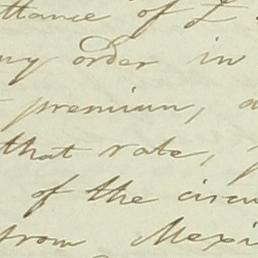 ttance of £
my order in
premium, a
that rate,
of the circu
from Mexi